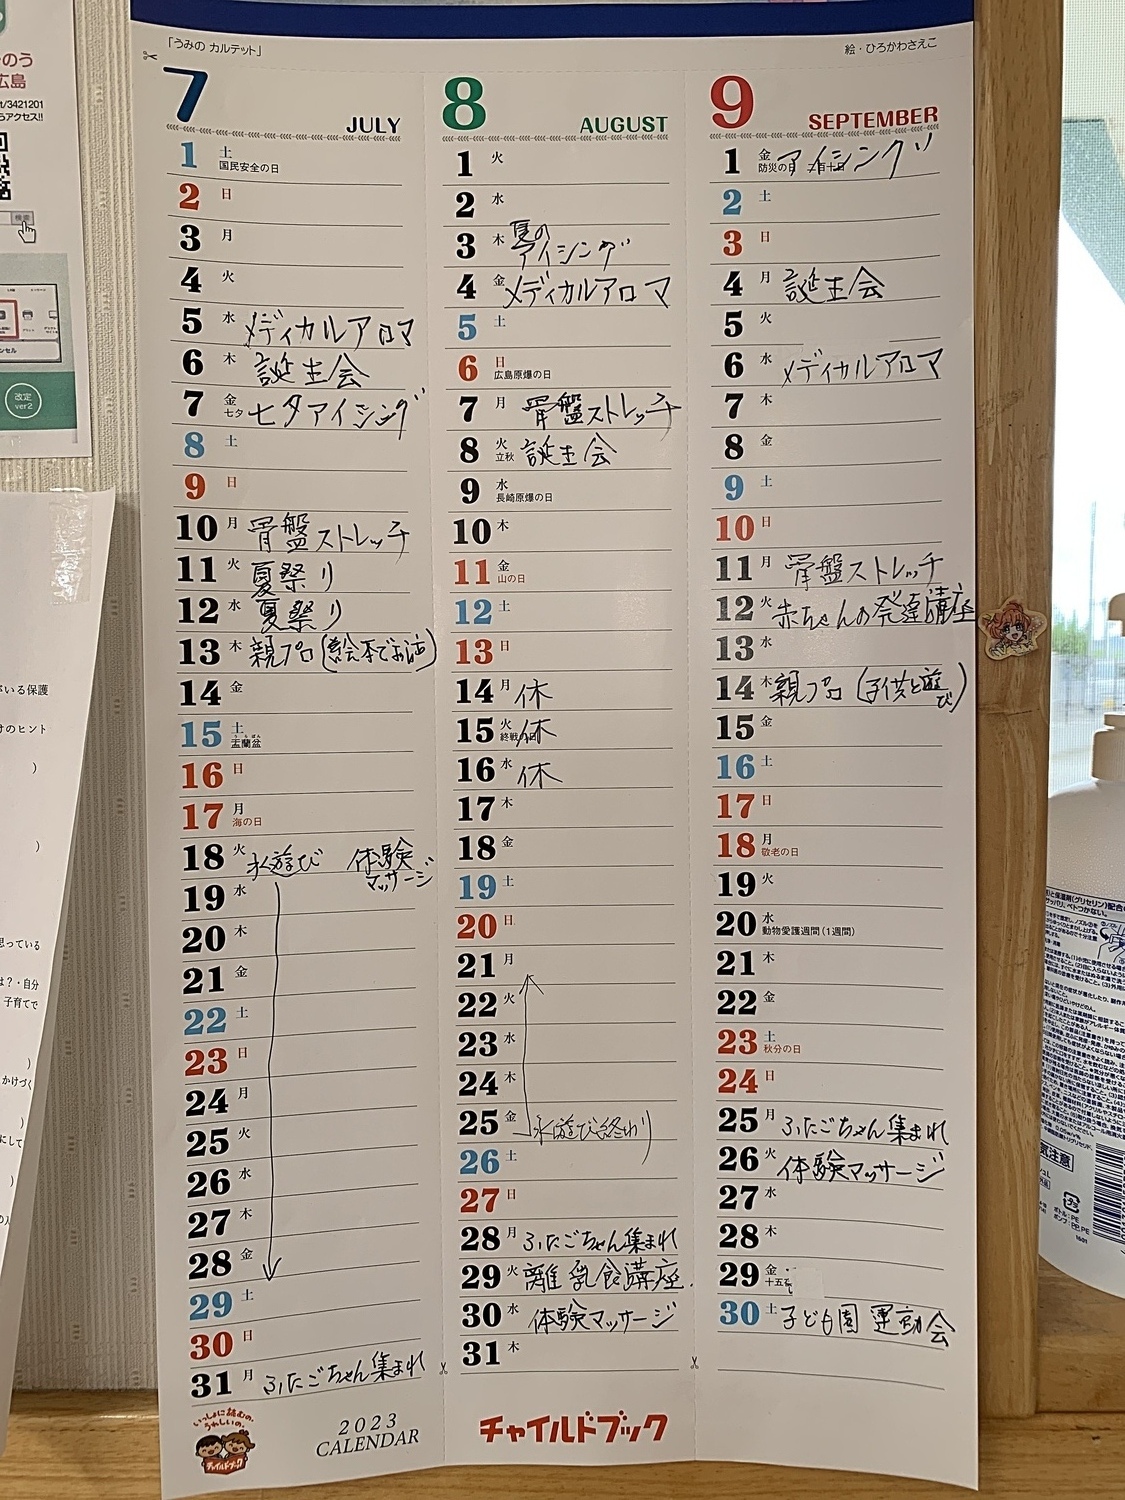 「うみの カルテット」
絵・ひろかわさえこ
7 JULY
1 土 国民安全の日
2 日
3 月
4 火
5 水 メディカルアロマ
6 木 誕生会
7 金 七夕 七夕アイシング
8 土
9 日
10 月 骨盤ストレッチ
11 火 夏祭り
12 水 夏祭り
13 木 親プロ(絵本でお話)
14 金
15 土 盂蘭盆
16 日
17 月 海の日
18 火 水遊び 体験マッサージ
19 水
20 木
21 金
22 土
23 日
24 月
25 火
26 水
27 木
28 金
29 土
30 日
31 月 ふたごちゃん集まれ
いっしょに読むの、うれしいの。
チャイルドブック
2023
CALENDAR
8 AUGUST
1 火
2 水
3 木 夏のアイシング
4 金 メディカルアロマ
5 土
6 日 広島原爆の日
7 月 骨盤ストレッチ
8 火 立秋 誕生会
9 水 長崎原爆の日
10 木
11 金 山の日
12 土
13 日
14 月 休
15 火 終戦の日 休
16 水 休
17 木
18 金
19 土
20 日
21 月
22 火
23 水
24 木
25 金 水遊び終わり
26 土
27 日
28 月 ふたごちゃん集まれ
29 火 離乳食講座
30 水 体験マッサージ
31 木
チャイルドブック
9 SEPTEMBER
1 金 防災の日 アイシング
2 土
3 日
4 月 誕生会
5 火
6 水 メディカルアロマ
7 木
8 金
9 土
10 日
11 月 骨盤ストレッチ
12 火 赤ちゃんの発達講座
13 水
14 木 親プロ(子供と遊び)
15 金
16 土
17 日
18 月 敬老の日
19 火
20 水 動物愛護週間(1週間)
21 木
22 金
23 土 秋分の日
24 日
25 月 ふたごちゃん集まれ
26 火 体験マッサージ
27 水
28 木
29 金
30 土 子ども園 運動会
広島
/3421201
アクセス!!
検索
改定
ver2
いる保護
のヒント
思っている
は?・自分
子育てで
かけづく
気注意